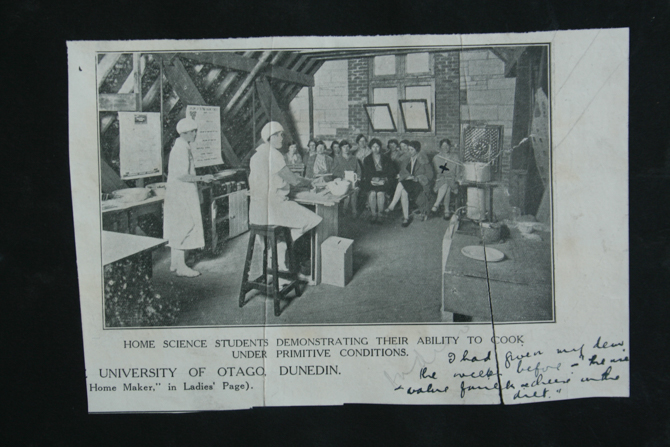 HOME SCIENCE STUDENTS DEMONSTRATING THEIR ABILITY TO COOK
UNDER PRIMITIVE CONDITIONS.
UNIVERSITY OF OTAGO, DUNEDIN.
Home Maker," in Ladies' Page).
I had given my dem
the week before - "the
value
diet."